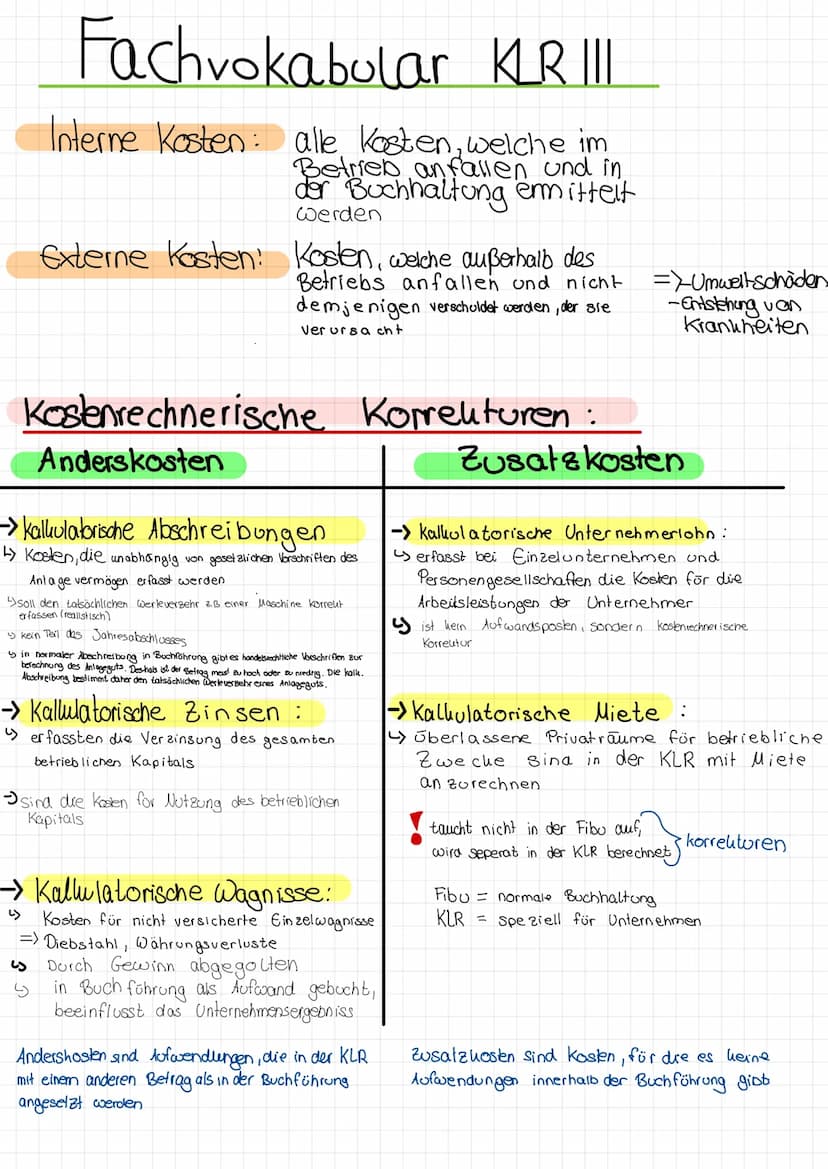 Fachvokabular KLR III
Interne Kosten: alle Kosten, welche im
Betrieb anfallen und in
der Buchhaltung ermittelt
werden
Externe Kosten: Kosten, welche außerhalb des
Betriebs anfallen und nicht
demjenigen verschuldet werden, der sie
verursacht
=> - Umweltschäden
- Entstehung von
Krankheiten
Kostenrechnerische Korrekturen:
Anderskosten
→ kalkulatorische Abschreibungen
↳ Kosten, die unabhängig von gesetzlichen Vorschriften des
Anlagevermögen erfasst werden
↳ soll den tatsächlichen Werteverzehr z.B einer Maschine korrekt
erfassen (realistisch)
↳ kein Teil des Jahresabschlusses
↳ in normaler Abschreibung in Buchführung gibt es handelsrechtliche Vorschriften zur
berechnung des Anlageguts. Deshalb ist der Betrag meist zu hoch oder zu niedrig. Die kalk.
Abschreibung bestimmt daher den tatsächlichen Werteverzehr eines Anlageguts.
→ Kalkulatorische Zinsen:
↳ erfassten die Verzinsung des gesamten
betrieblichen Kapitals
→ sind die Kosten für Nutzung des betrieblichen
Kapitals
→ Kalkulatorische Wagnisse:
↳ Kosten für nicht versicherte Einzelwagnisse
=> Diebstahl, Währungsverluste
↳ Durch Gewinn abgegolten
↳ in Buchführung als Aufwand gebucht,
beeinflusst das Unternehmensergebniss
Anderskosten sind Aufwendungen, die in der KLR
mit einem anderen Betrag als in der Buchführung
angesetzt werden
Zusatzkosten
→ kalkulatorische Unternehmerlohn:
↳ erfasst bei Einzelunternehmen und
Personengesellschaften die Kosten für die
Arbeitsleistungen der Unternehmer
↳ ist kein Aufwandsposten, sondern kostenrechnerische
Korrektur
→ Kalkulatorische Miete:
↳ überlassene Privaträume für betriebliche
Zwecke sind in der KLR mit Miete
anzurechnen
! taucht nicht in der Fibu auf,
wird seperat in der KLR berechnet
korrekturen
Fibu = normale Buchhaltung
KLR = speziell für Unternehmen
Zusatzkosten sind Kosten, für die es keine
Aufwendungen innerhalb der Buchführung gibt